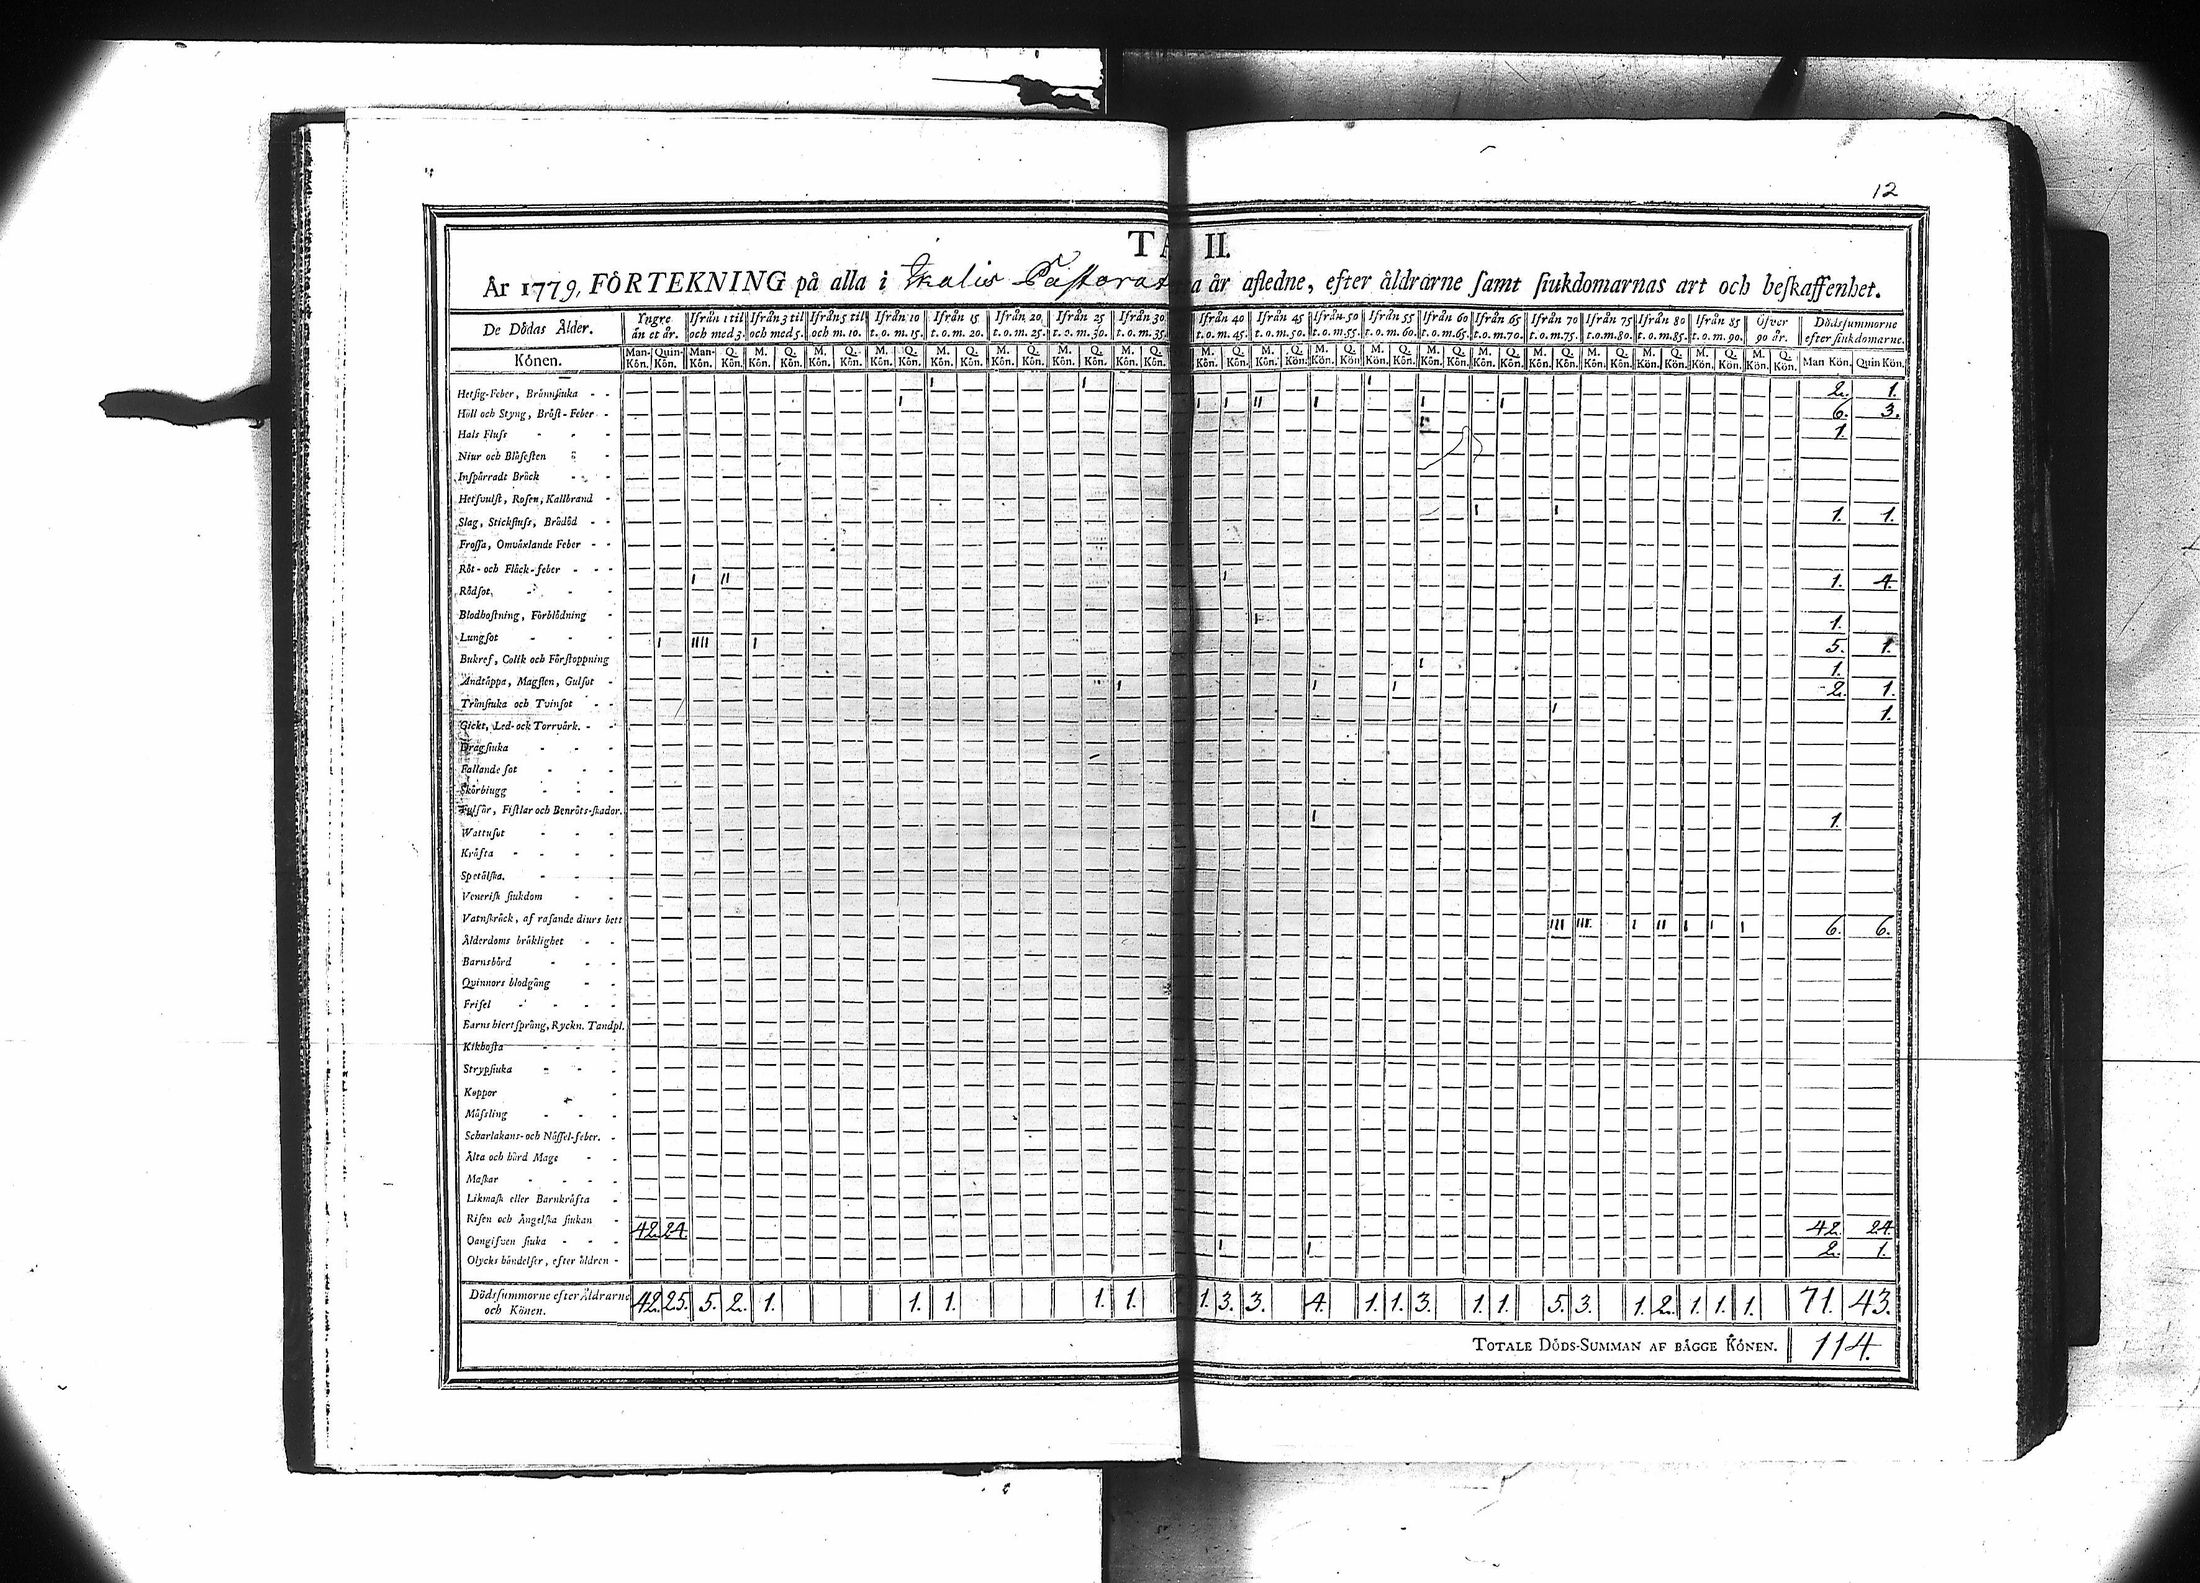 12
TA II.
År 1779, FÖRTEKNING på alla i Ikalis Pastorat a år afledne, efter åldrarne samt siukdomarnas art och beskaffenhet.
De Dödas Ålder. Yngre än et år. Ifrån 1 til och med 3. Ifrån 3 til och med 5. Ifrån 5 til och m. 10. Ifrån 10 t. o. m. 15. Ifrån 15 t. o. m. 20. Ifrån 20 t. o. m. 25. Ifrån 25 t. o. m. 30. Ifrån 30 t. o. m. 35. Ifrån 40 t. o. m. 45. Ifrån 45 t. o. m. 50. Ifrån 50 t. o. m. 55. Ifrån 55 t. o. m. 60. Ifrån 60 t. o. m. 65. Ifrån 65 t. o. m. 70. Ifrån 70 t. o. m. 75. Ifrån 75 t. o. m. 80. Ifrån 80 t. o. m. 85. Ifrån 85 t. o. m. 90. Öfver 90 år. Dödssummorne efter siukdomarne.
Könen. Man-Kön. Quin-Kön. Man-Kön. Q. Kön. M. Kön. Q. Kön. M. Kön. Q. Kön. M. Kön. Q. Kön. M. Kön. Q. Kön. M. Kön. Q. Kön. M. Kön. Q. Kön. M. Kön. Q. Kön. M. Kön. Q. Kön. M. Kön. Q. Kön. M. Kön. Q. Kön. M. Kön. Q. Kön. M. Kön. Q. Kön. M. Kön. Q. Kön. M. Kön. Q. Kön. M. Kön. Q. Kön. M. Kön. Q. Kön. M. Kön. Q. Kön. M. Kön. Q. Kön. Man Kön. Quin Kön.
Hetsig-Feber, Brännsiuka ı ı ı 2. 1.
Håll och Styng, Bröst-Feber ı ı ı ıı ı ı ı 6. 3.
Hals Fluss ı 1.
Niur och Blåsesten
Inspärradt Bråck
Hetsvulst, Rosen, Kallbrand
Slag, Stickfluss, Brådöd ı ı 1. 1.
Frossa, Omväxlande Feber
Röt- och Fläck-feber
Rödsot ı ıı ı 1. 4.
Blodhostning, Förblödning
Lungsot ı 1.
Bukref, Colik och Förstoppning ı ıııı ı 5. 1.
Andtäppa, Magsten, Gulsot ı 1.
Trånsiuka och Tvinsot ı ı ı 2. 1.
Gickt, Led- och Torrvärk. ı 1.
Dragsiuka
Fallande sot
Skörbiugg
Fulsår, Fistlar och Benröts-skador.
Wattusot ı 1.
Kräfta
Spetälska.
Venerisk siukdom
Vatnskräck, af rasande diurs bett
Ålderdoms bräklighet ııı ııı ı ıı ı ı ı 6. 6.
Barnsbörd
Qvinnors blodgång
Frisel
Barns hiertsprång, Ryckn. Tandpl.
Kikhosta
Strypsiuka
Koppor
Mässling
Scharlakans- och Nässel-feber.
Älta och hård Mage
Maskar
Likmask eller Barnkräfta
Risen och Ängelska siukan
Oangifven siuka 42. 24. 42. 24.
Olycks händelser, efter åldren ı ı 2. 1.
Dödssummorne efter Åldrarne och Könen. 42. 25. 5. 2. 1. 1. 1. 1. 1. 1. 3. 3. 4. 1. 1. 3. 1. 1. 5. 3. 1. 2. 1. 1. 1. 71. 43.
TOTALE DÖDS-SUMMAN AF BÄGGE KÖNEN. 114.